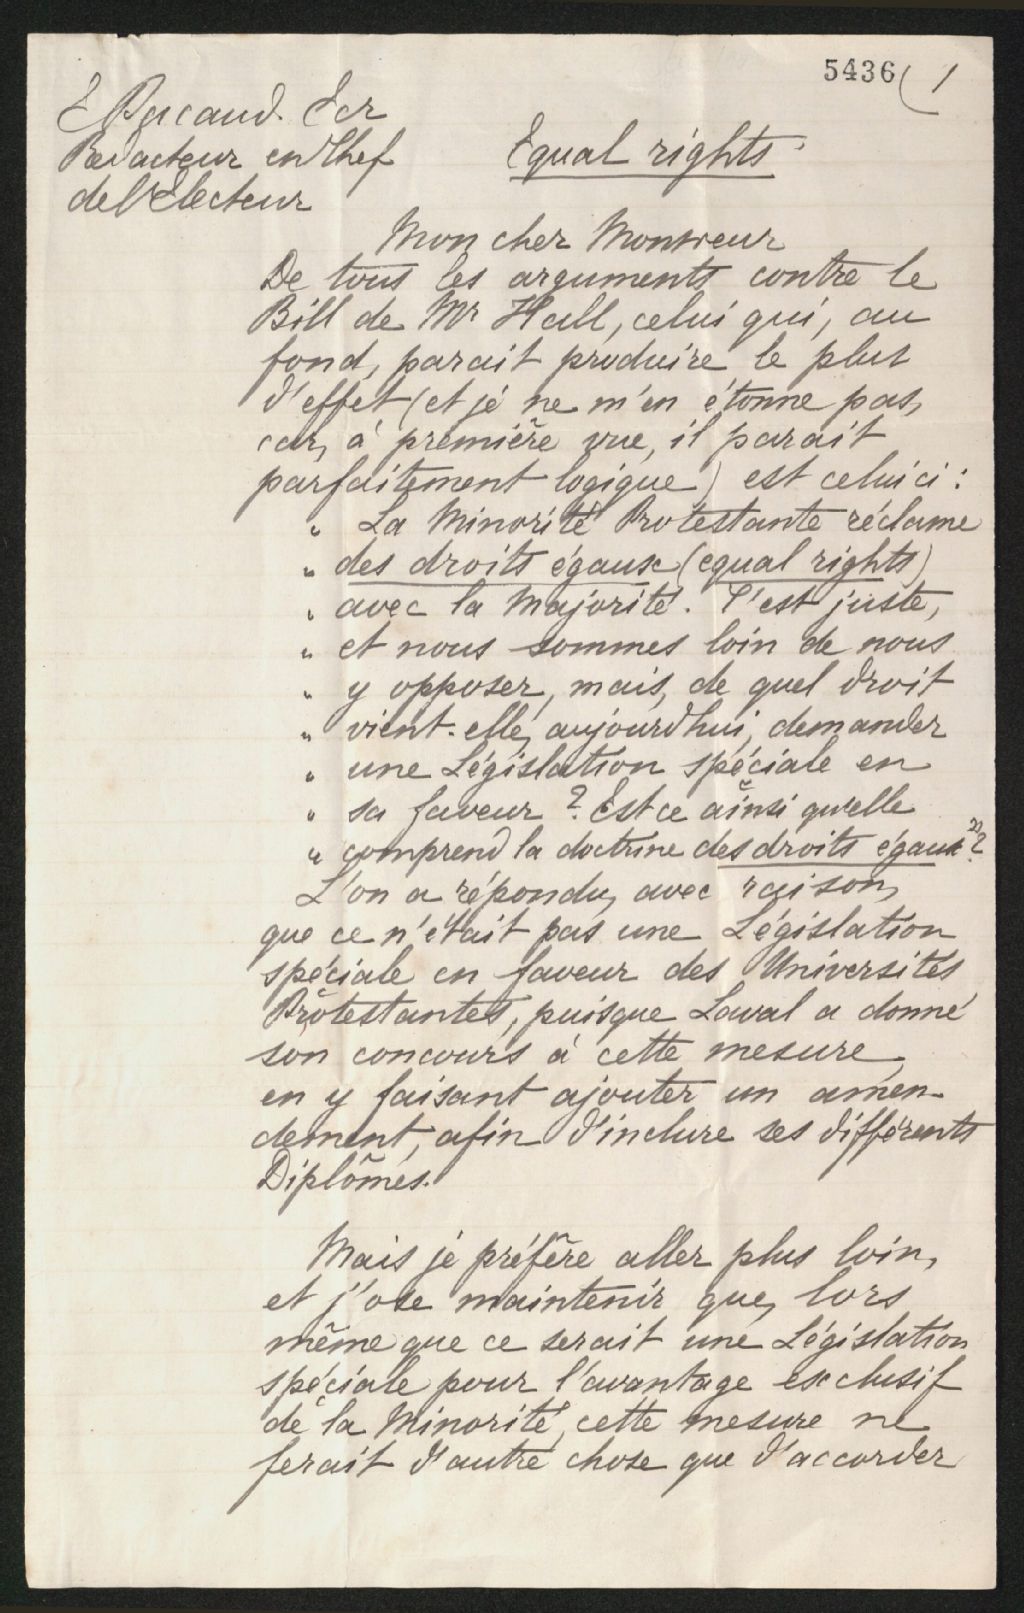 5436 ( 1
E Pacaud. Ecr
Redacteur en Chef
de l'Electeur
Equal rights
Mon cher Monsieur
De tous les arguments contre le
Bill de Mr Hall, celui qui, au
fond, parait produire le plus
d'effet (et je ne m'en étonne pas,
car, à première vue, il parait
parfaitement logique) est celui ci :
" La Minorité Protestante réclame
" des droits égaux (equal rights)
" avec la Majorité. C'est juste,
" et nous sommes loin de nous
" y opposer, mais, de quel droit
" vient-elle, aujourd'hui, demander
" une Législation spéciale en
" sa faveur ? Est ce ainsi qu'elle
" comprend la doctrine des droits égaux" ?
L'on a répondu, avec raison,
que ce n'était pas une Législation
spéciale en faveur des Universités
Protestantes, puisque Laval a donné
son concours à cette mesure,
en y faisant ajouter un amen-
dement, afin d'inclure ses différents
Diplômes.
Mais je préfère aller plus loin,
et j'ose maintenir que, lors
même que ce serait une Législation
spéciale pour l'avantage exclusif
de la Minorité, cette mesure ne
ferait d'autre chose que d'accorder